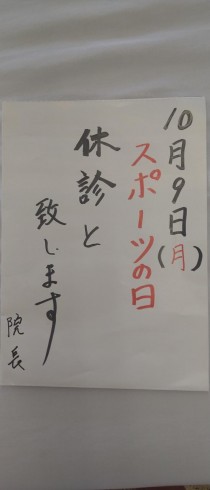 10月9日(月)
スポーツの日
休診と
致します
院長